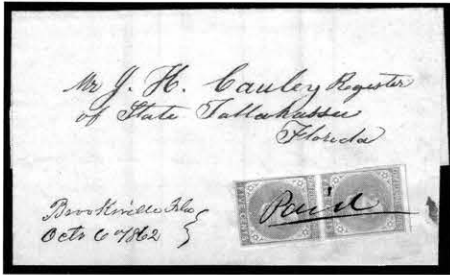 Mr J. H. Cauley Register
of State Tallahassee
Florida
Brooksville Fla
Octr 6th 1862
Paid
FIVE CENTS